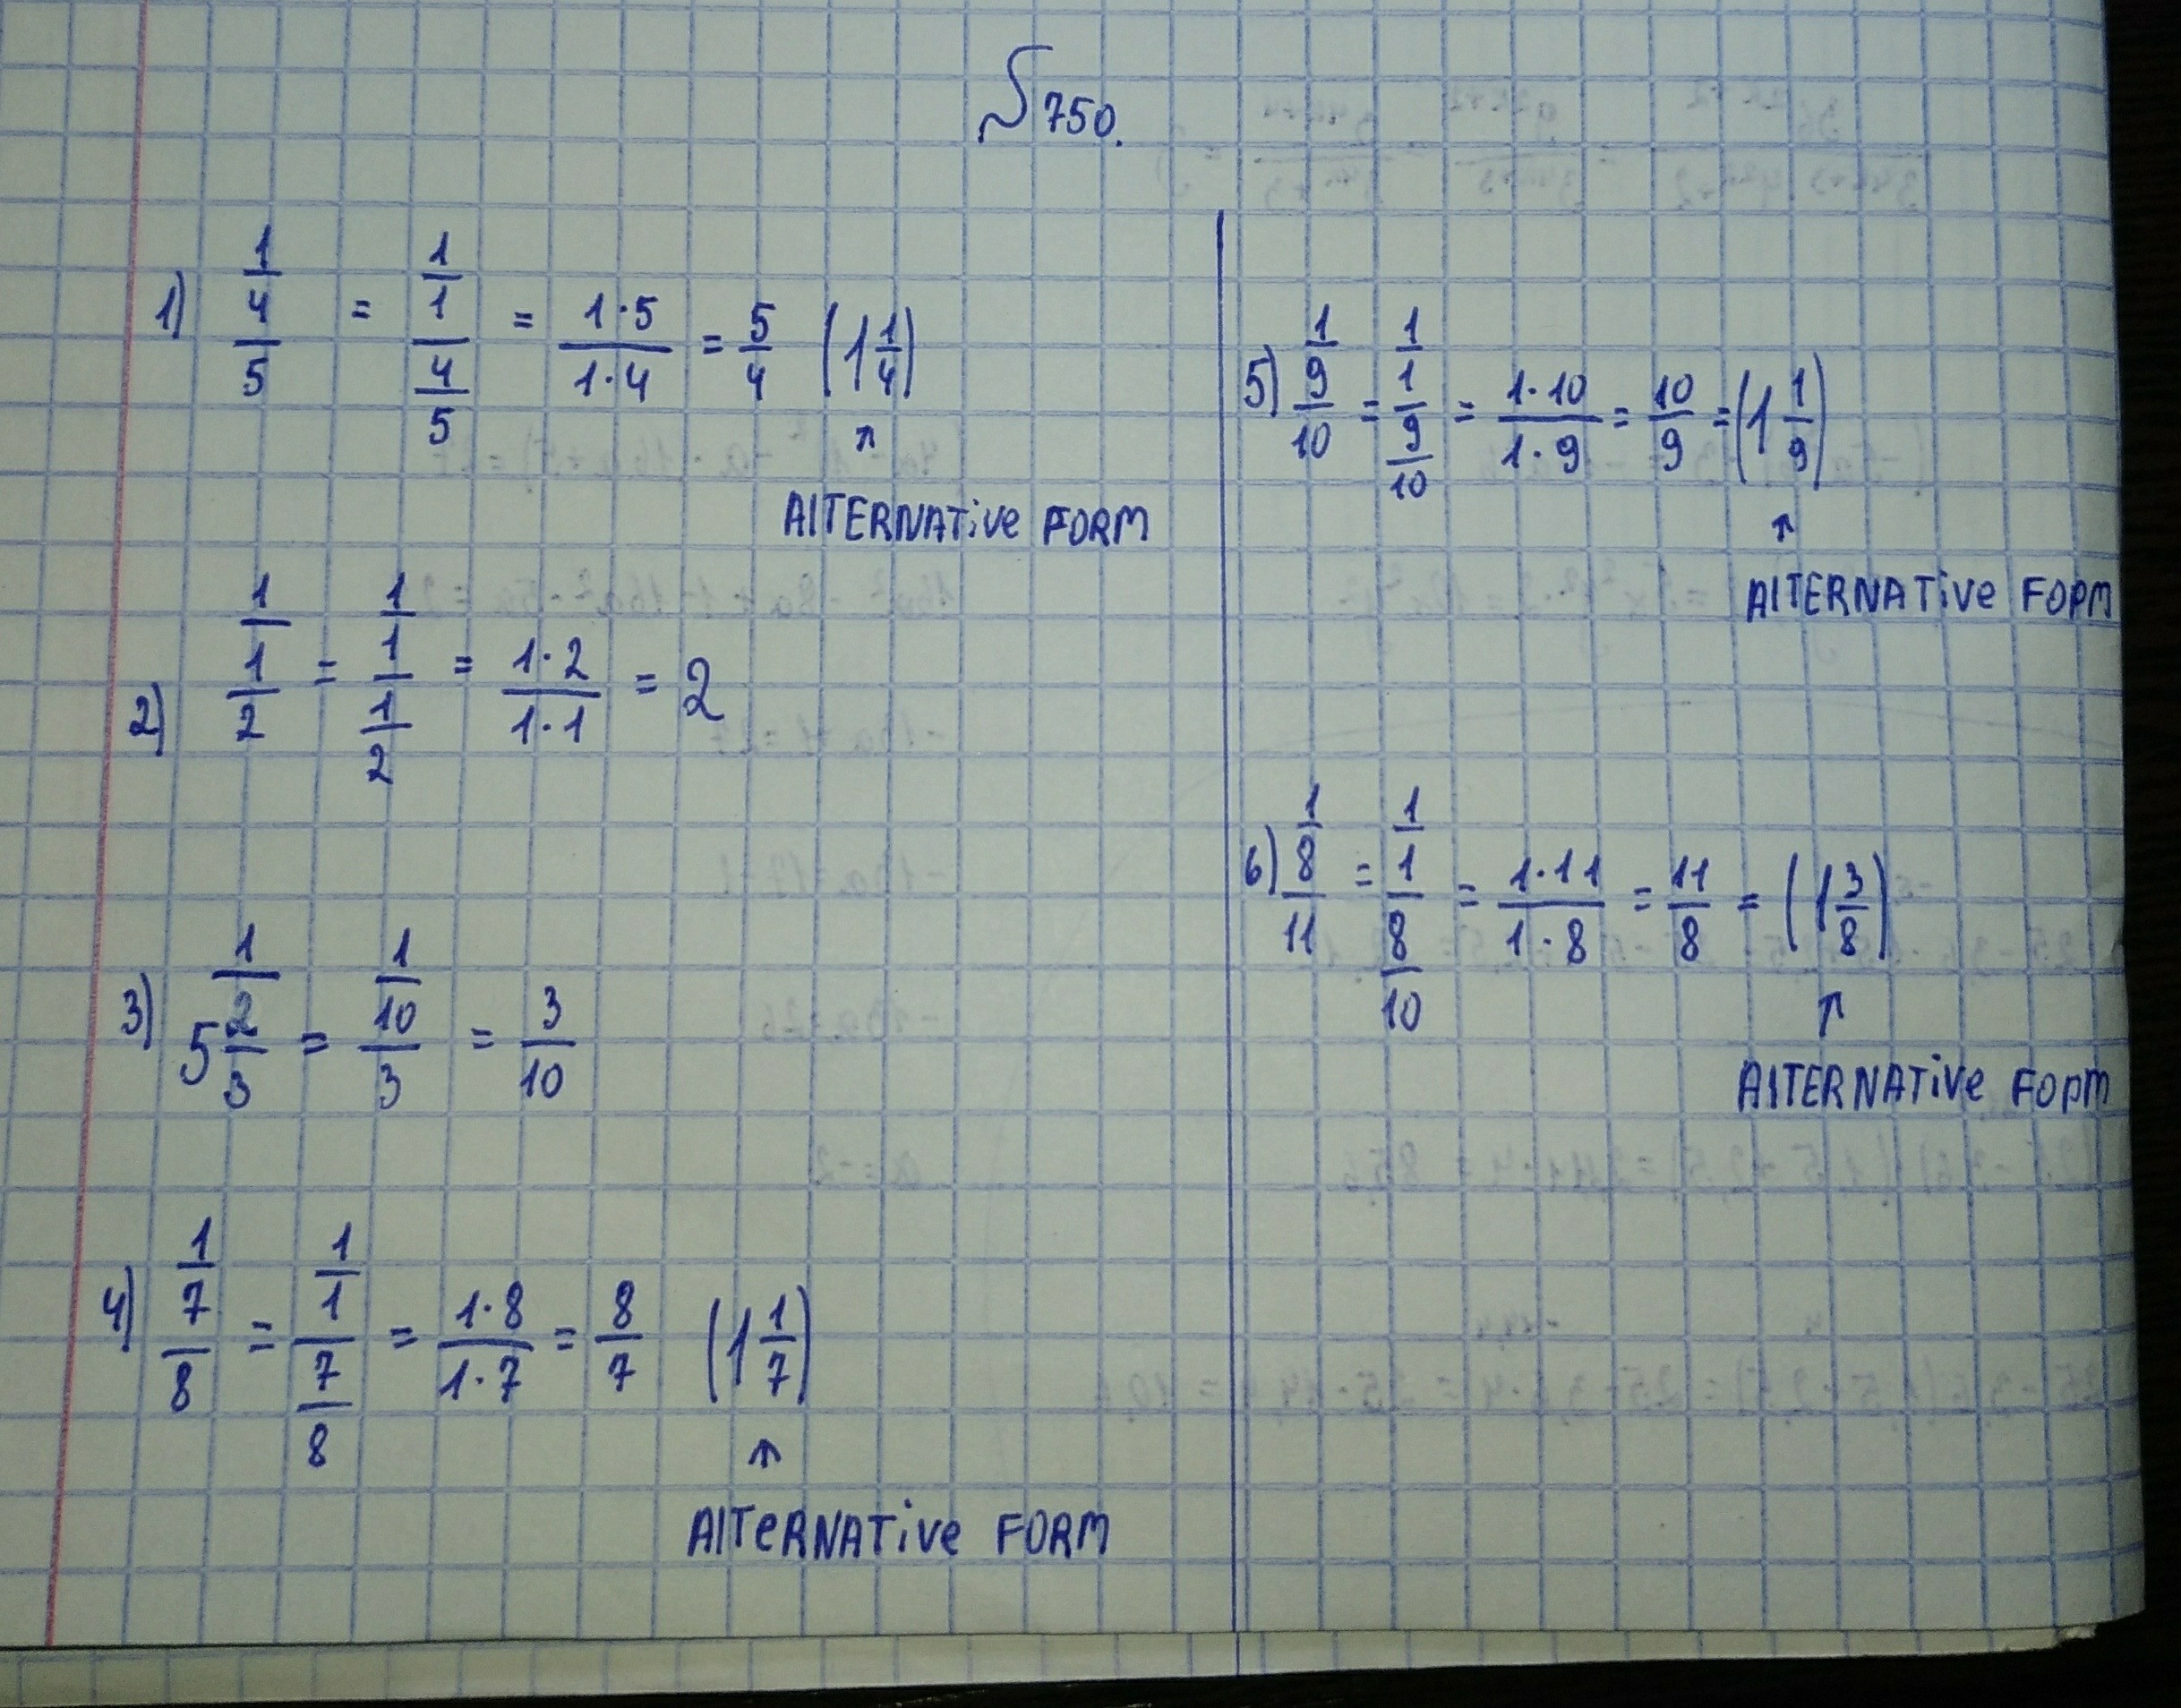 № 750.
1) 1/(4/5) = (1/1)/(4/5) = (1·5)/(1·4) = 5/4 (1 1/4)
↑
AlTERNATive FORM
2) 1/(1/2) = (1/1)/(1/2) = (1·2)/(1·1) = 2
3) 1/(5 2/3) = 1/(10/3) = 3/10
4) 1/(7/8) = (1/1)/(7/8) = (1·8)/(1·7) = 8/7 (1 1/7)
↑
AlTeRNATive FORM
5) 1/(9/10) = (1/1)/(9/10) = (1·10)/(1·9) = 10/9 = (1 1/9)
↑
AlTERNATive FORM
6) 1/(8/11) = (1/1)/(8/10) = (1·11)/(1·8) = 11/8 = (1 3/8)
↑
AlTERNATive FORM